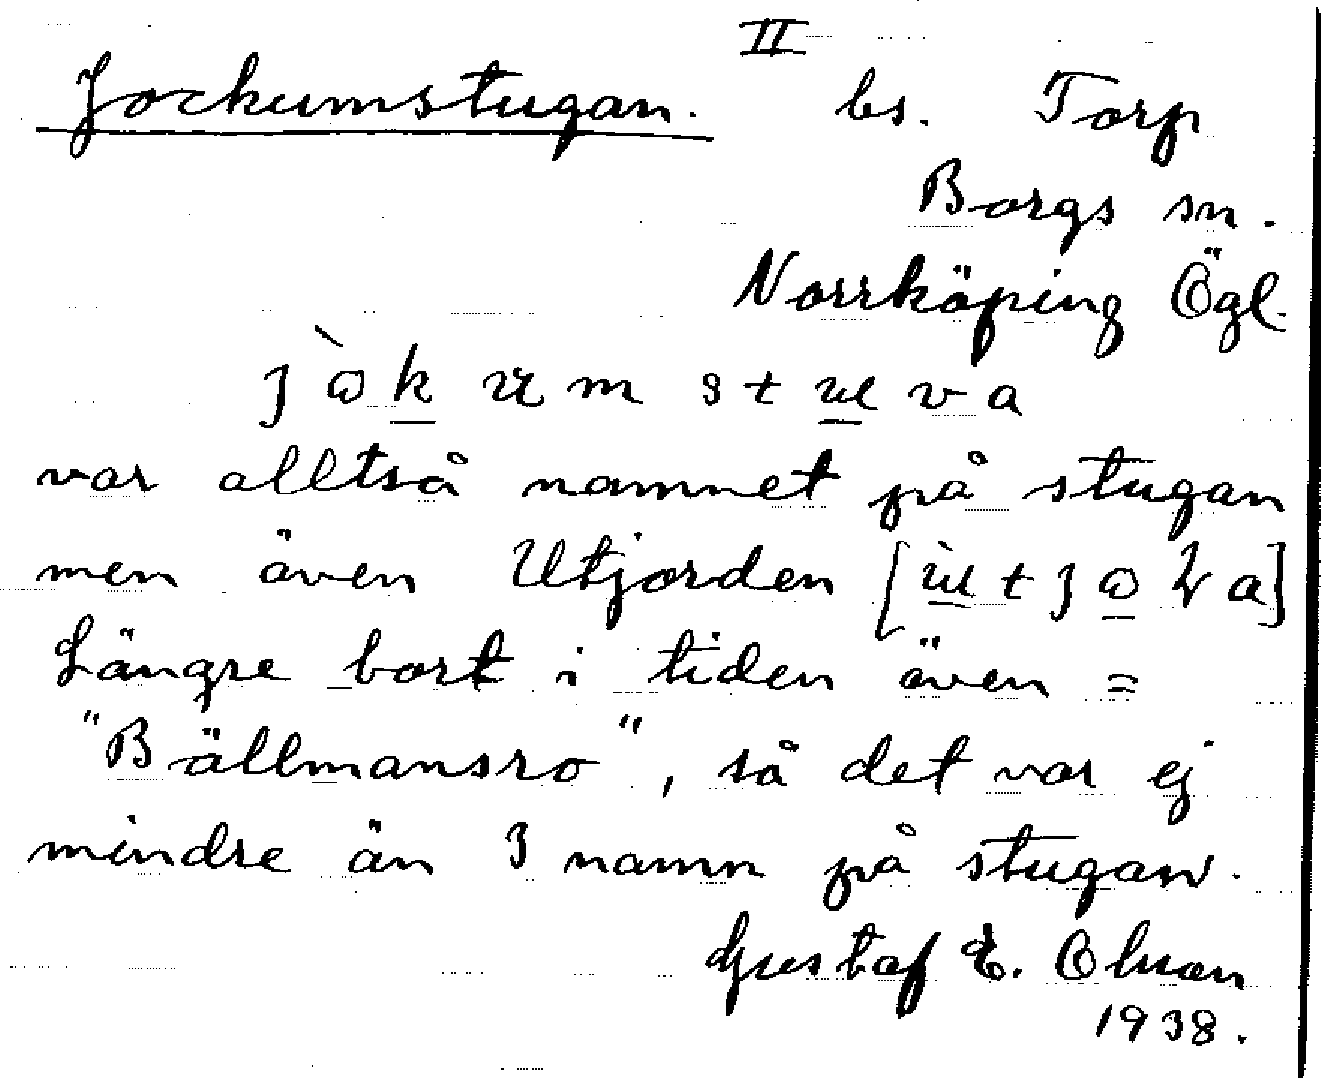 II
Jockumstugan. bs. Torp
Borgs sn.
Norrköping Ögl.
var alltså namnet på stugan
men även Utjorden
Längre bort i tiden även =
"Bällmansro", så det var ej
mindre än 3 namn på stugan.
Gustaf E. Olsson
1938.